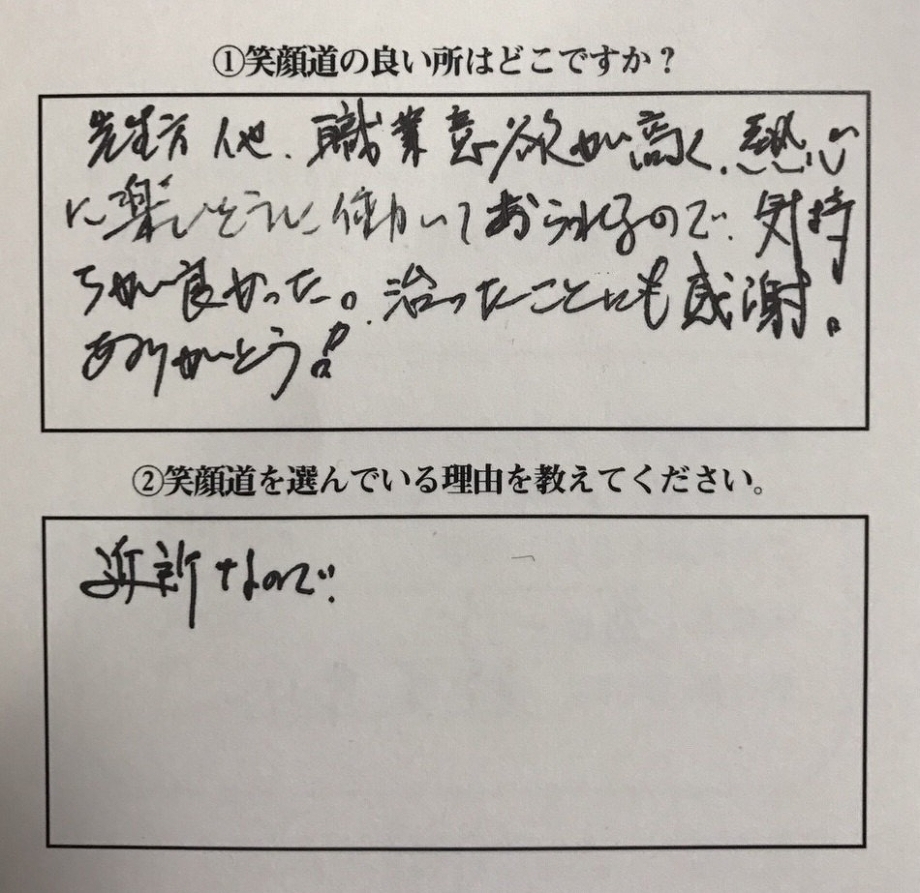 ①笑顔道の良い所はどこですか？
先生方他、職業意欲が高く、熱心
に楽しそうに働いておられるので、気持
ちが良かった。治ったことにも感謝。
ありがとう!!
②笑顔道を選んでいる理由を教えてください。
近所なので。